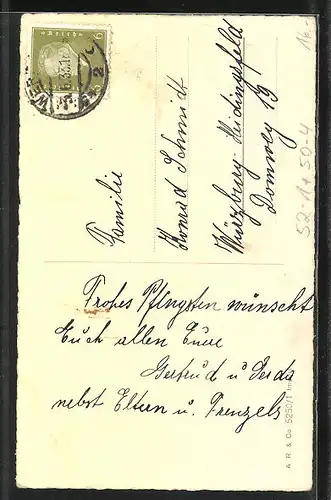 Familie
Konrad Schmidt
Würzburg-Heidingsfeld
Domweg 19
Frohes Pfingsten wünscht
Euch allen Eure
Gertrud u Gerda
nebst Eltern u. Frenzels
A. R. & Co. 5250/1
52-1+50-4
16.-
6